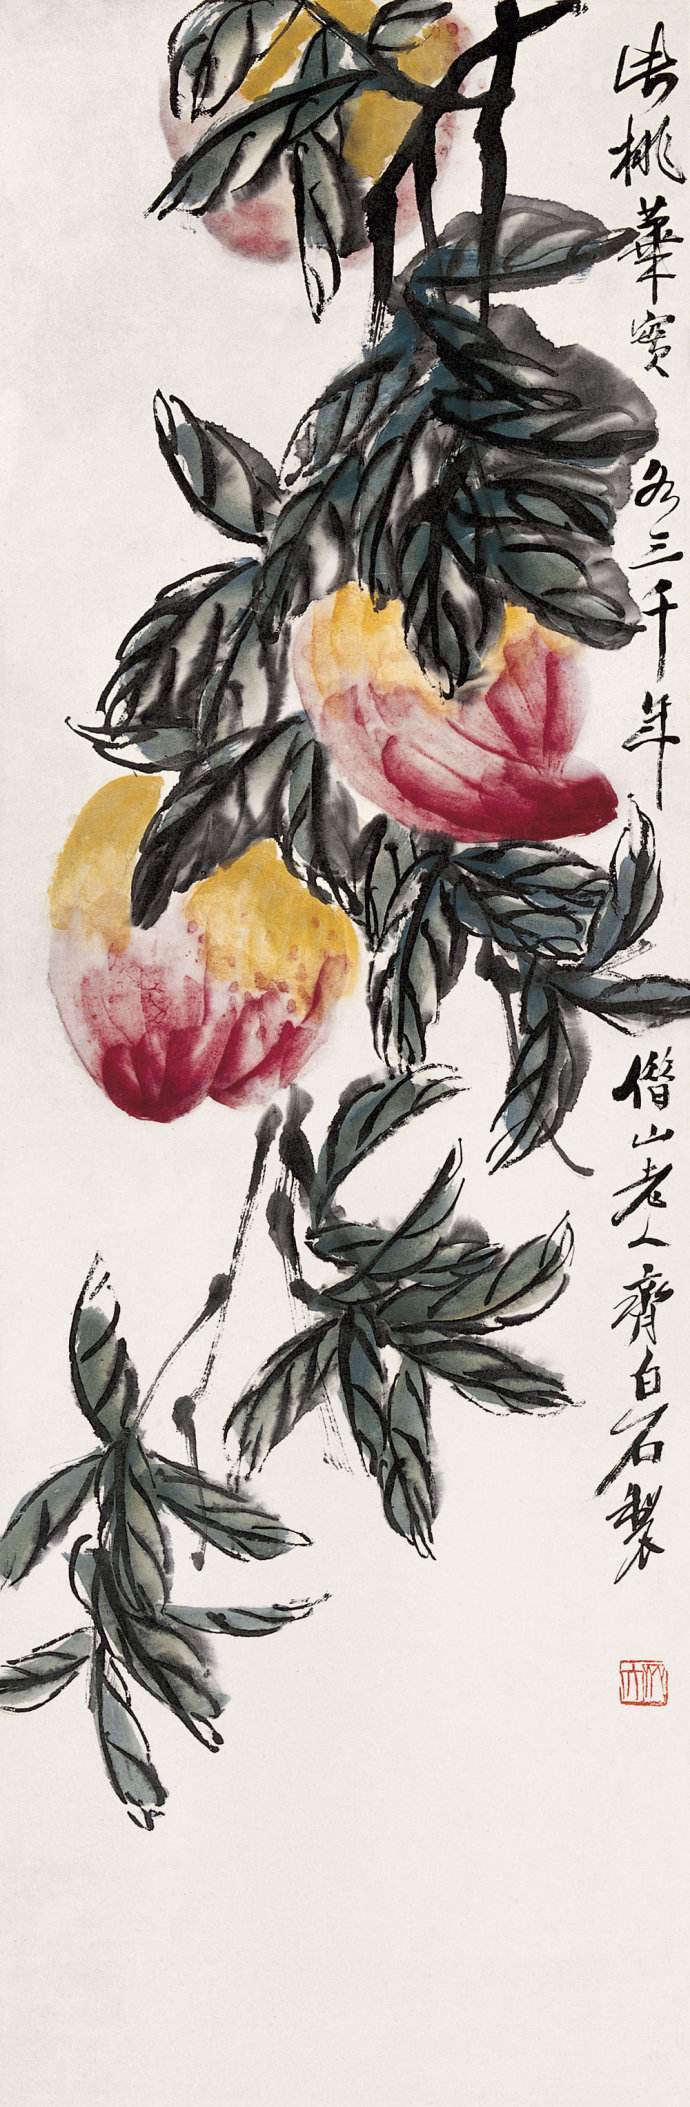 此桃華實各三千年借山老人齊白石製